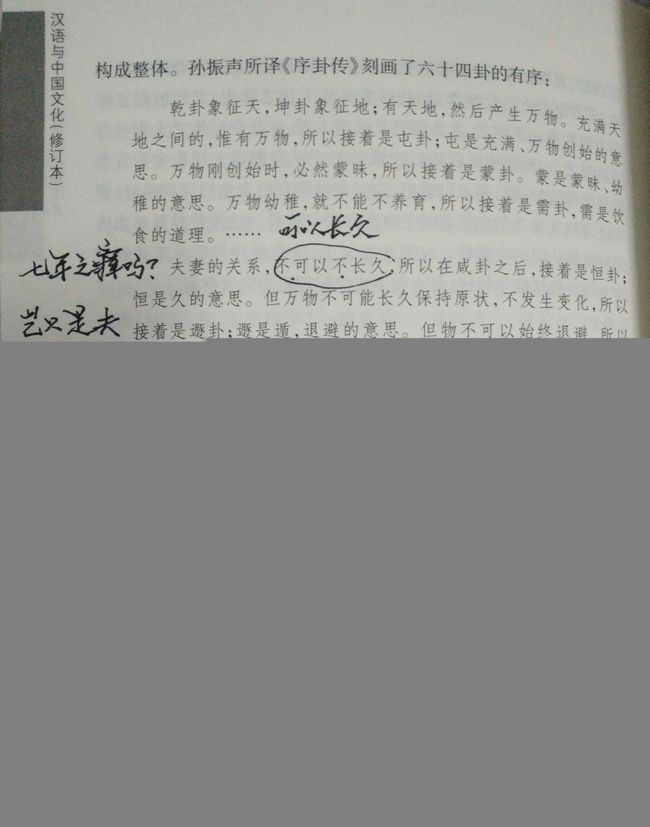 汉语与中国文化(修订本)
构成整体。孙振声所译《序卦传》刻画了六十四卦的有序:
乾卦象征天,坤卦象征地;有天地,然后产生万物。充满天
地之间的,惟有万物,所以接着是屯卦;屯是充满、万物创始的意
思。万物刚创始时,必然蒙昧,所以接着是蒙卦。蒙是蒙昧、幼
稚的意思。万物幼稚,就不能不养育,所以接着是需卦,需是饮
食的道理。……
可以长久
七年之痒吗?
夫妻的关系,不可以不长久;所以在咸卦之后,接着是恒卦;
恒是久的意思。但万物不可能长久保持原状,不发生变化,所以
岂只是夫
接着是遯卦;遯是遁,退避的意思。但物不可以始终退避,所以